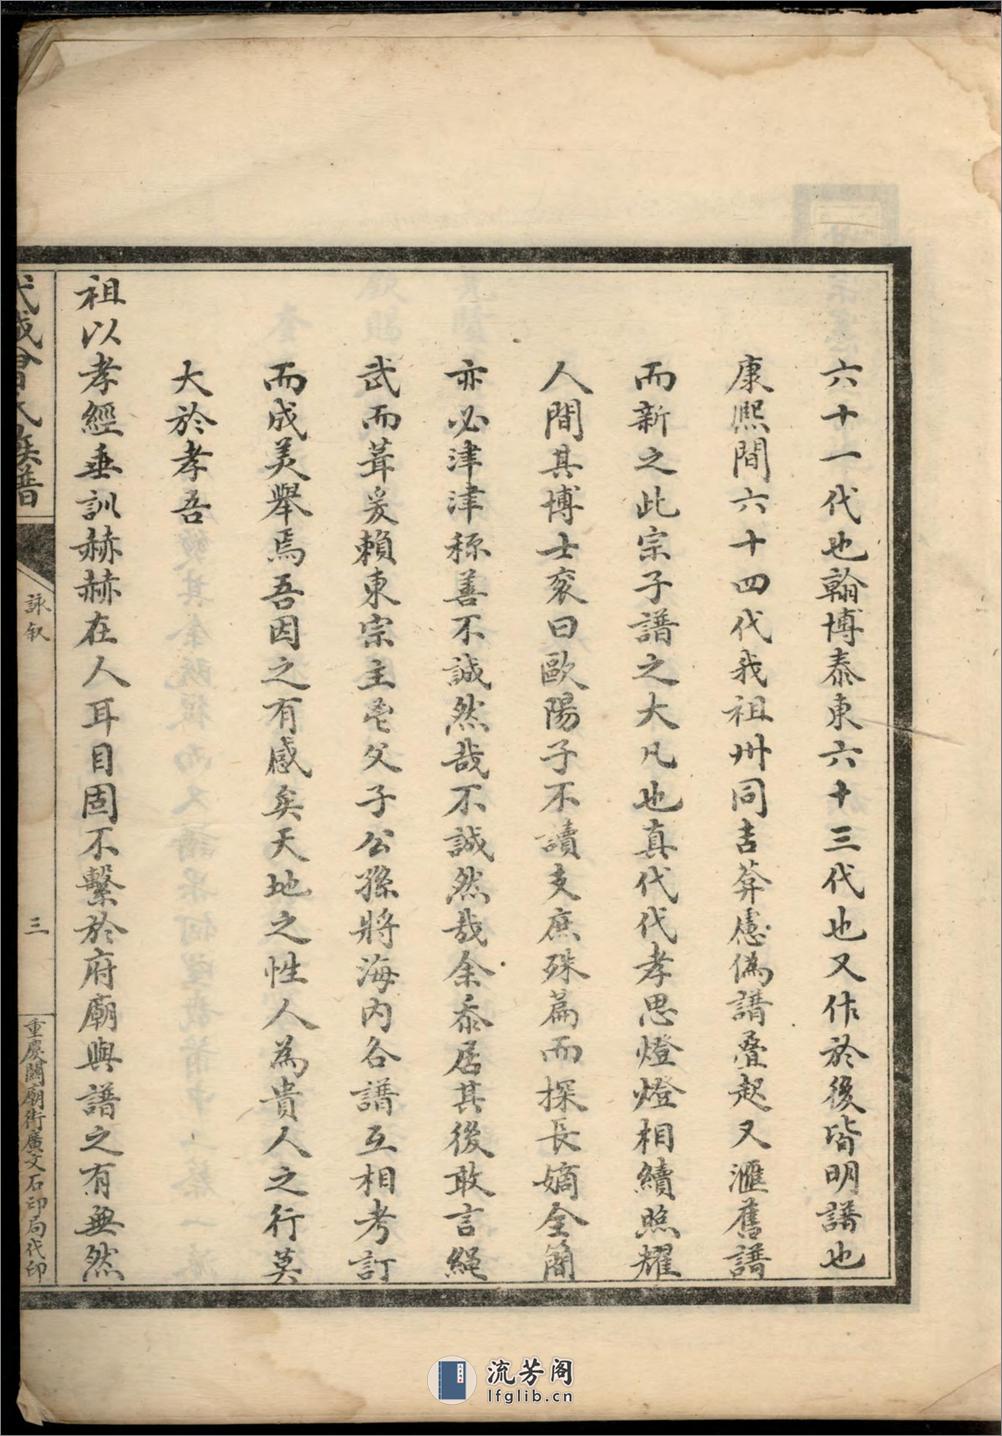 六十一代也翰博泰東六十三代也又作於後皆明譜也
康熙間六十四代我祖州同吉莽慮偽譜疊起又滙舊譜
而新之此宗子譜之大凡也真代代孝思燈燈相續照耀
人間其博士衮曰歐陽子不讀支庶殊篇而探長嫡全簡
亦必津津称善不誠然哉不誠然哉余忝居其後敢言繩
武而葺爰賴東宗主毛父子公孫將海內各譜互相考訂
而成美舉焉吾因之有感矣天地之性人為貴人之行莫
大於孝吾
祖以孝經垂訓赫赫在人耳目固不繫於府廟與譜之有無然
武城曾氏族譜
詠叙
三
重慶關廟街廣文石印局代印
流芳阁
lfglib.cn